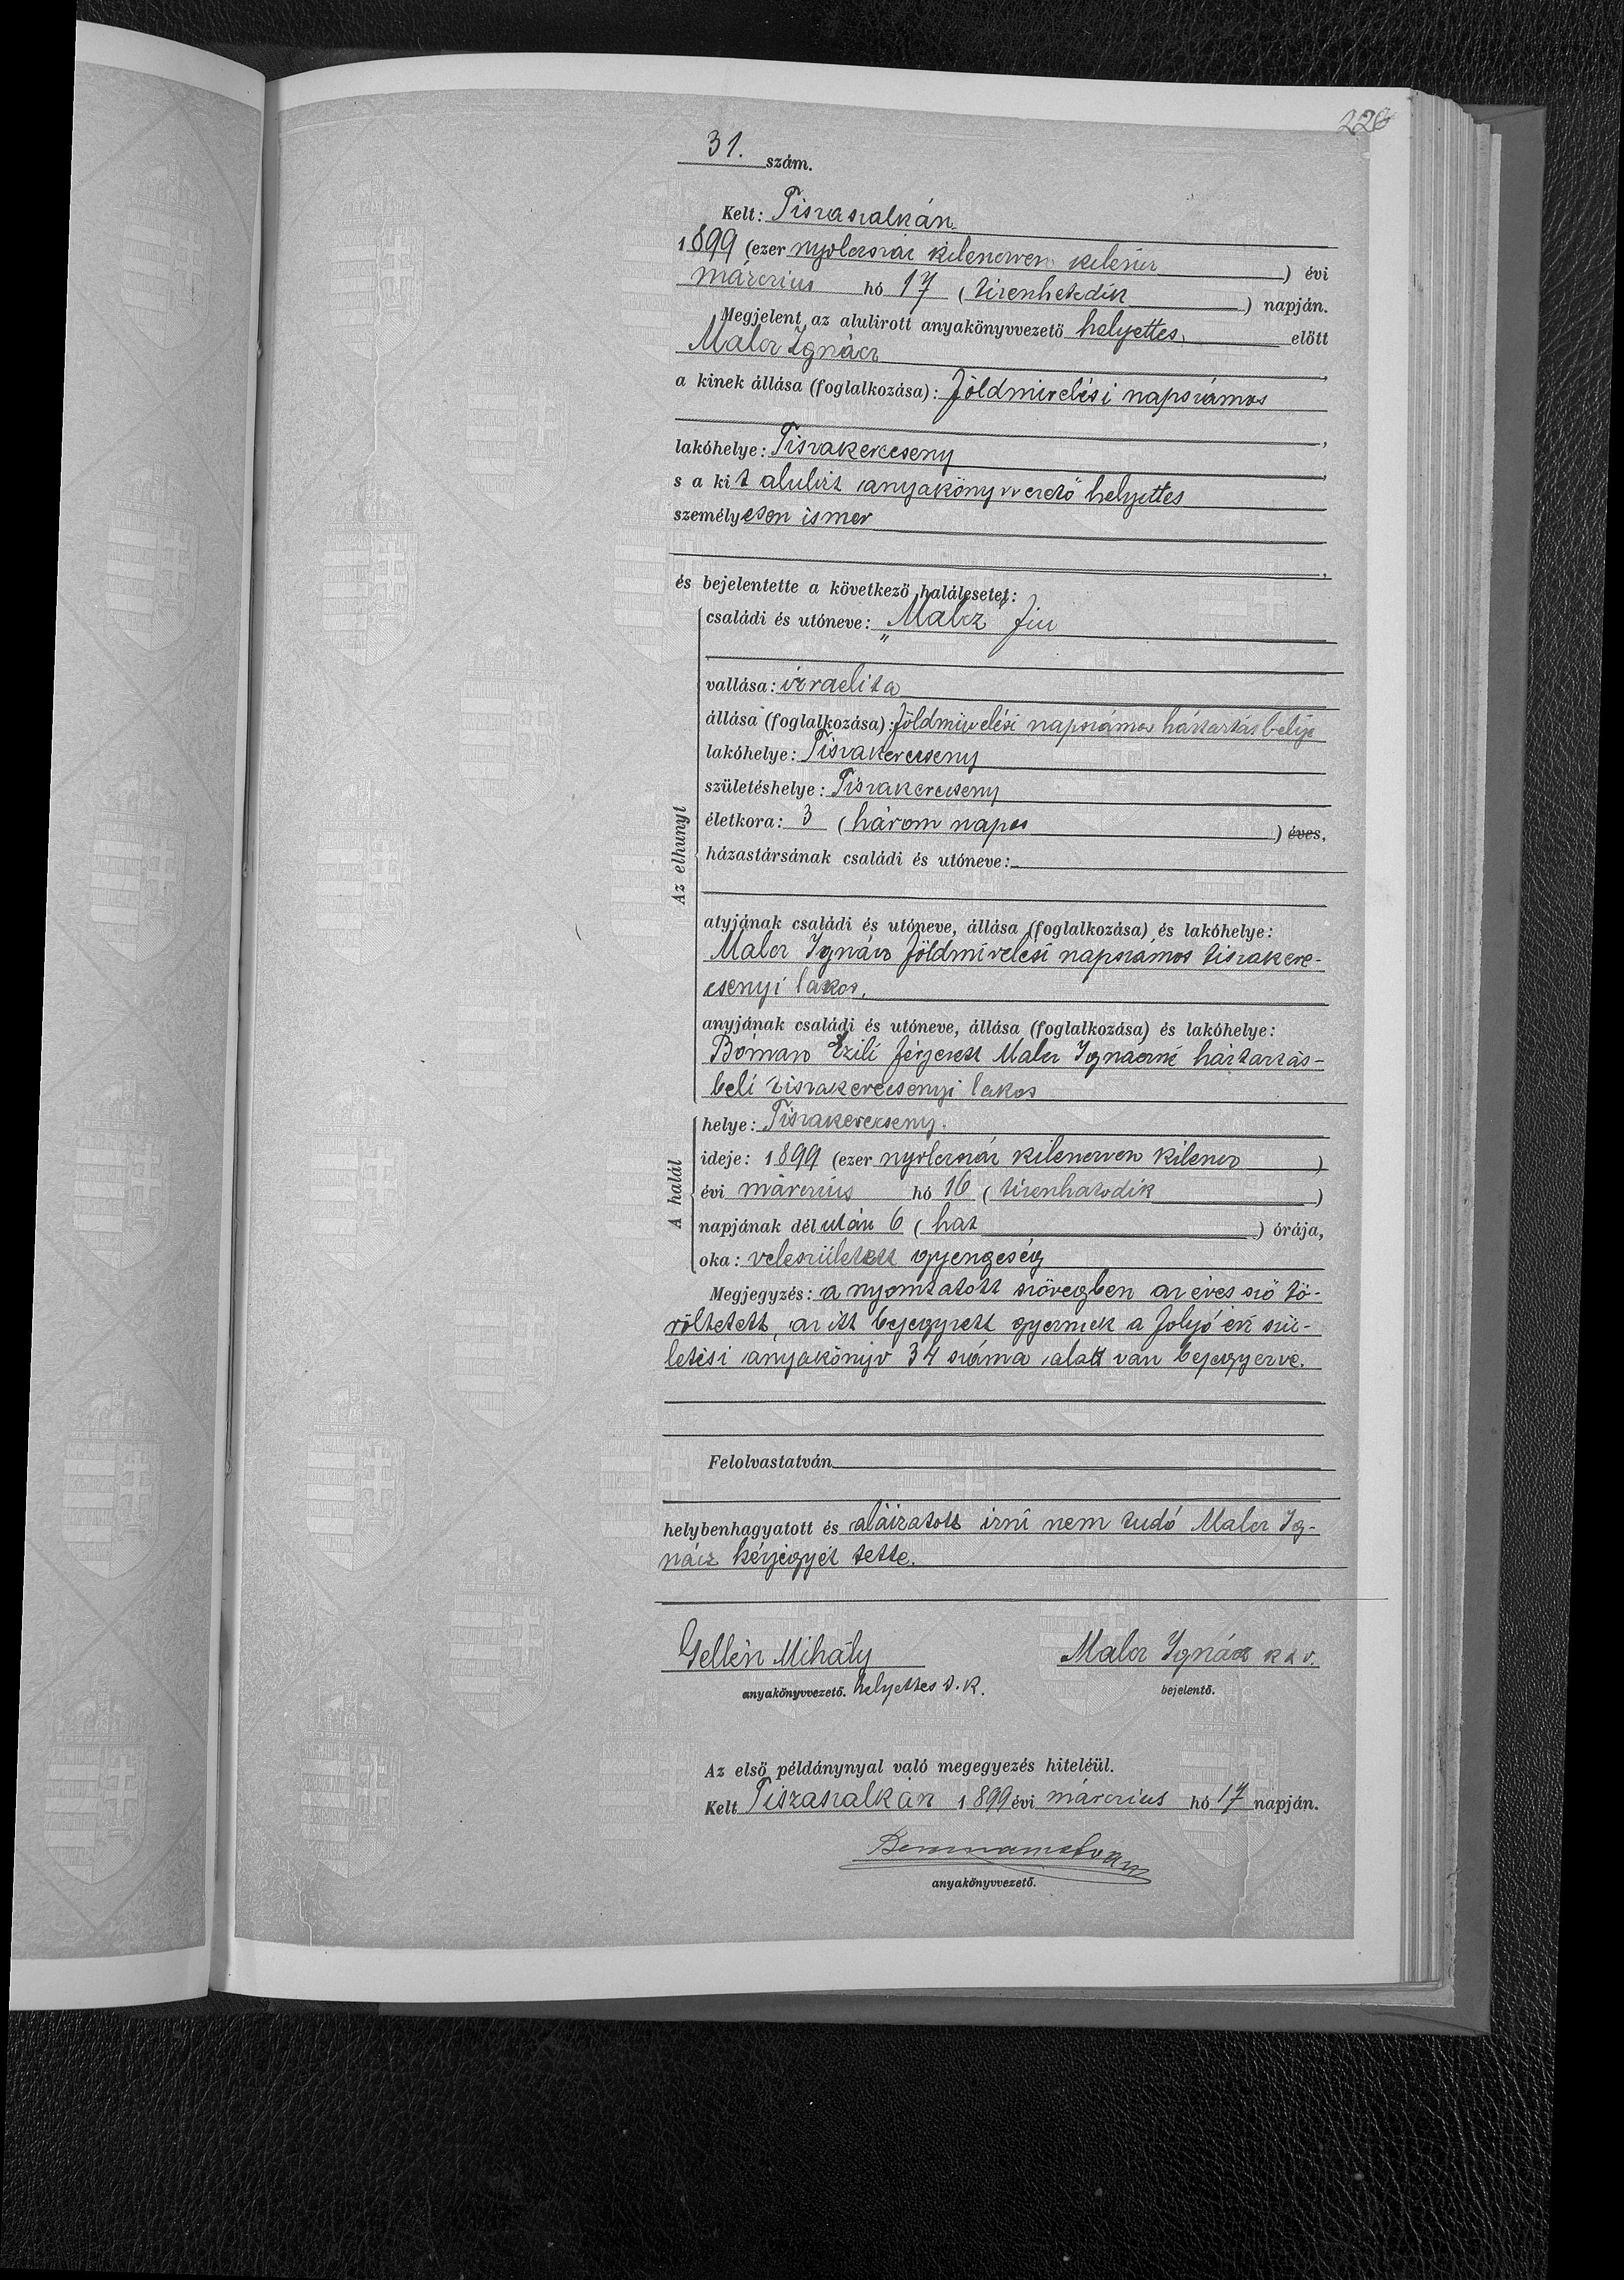 226
31. szám.
Kelt: Tiszaszalkán
1899 (ezer nyolczszáz kilenczven kilencz) évi
márczius hó 17 (tizenhetedik) napján.
Megjelent az alulirott anyakönyvvezető helyettes, előtt
Malcz Ignácz,
a kinek állása (foglalkozása): földmivelési napszámos
,
lakóhelye: Tiszakerecseny,
s a kit alulirt anyakönyvvezető helyettes
személyesen ismer
,
és bejelentette a következő halálesetet:
családi és utóneve: „Malcz" fiu
vallása: izraelita
állása (foglalkozása): földmivelési napszámos háztartásbelije
lakóhelye: Tiszakerecseny
születéshelye: Tiszakerecseny
életkora: 3 (három napos) éves,
házastársának családi és utóneve:
Az elhunyt
atyjának családi és utóneve, állása (foglalkozása) és lakóhelye:
Malcz Ignácz földmivelési napszámos tiszakere-
csenyi lakos,
anyjának családi és utóneve, állása (foglalkozása) és lakóhelye:
Ezili férjezett Malcz Ignáczné háztartás-
beli tiszakerecsenyi lakos
A halál
helye: Tiszakerecseny.
ideje: 1899 (ezer nyolczszáz kilenczven kilencz)
évi márczius hó 16 (tizenhatodik)
napjának dél után 6 (hat) órája,
oka: veleszületett gyengeség
Megjegyzés: a nyomtatott szövegben az éves szó tö-
röltetett, az itt bejegyzett gyermek a folyó évi szü-
letési anyakönyv 34 száma alatt van bejegyezve.
Felolvastatván
helybenhagyatott és aláiratott irni nem tudó Malcz Ig-
nácz kézjegyét tette.
Gellén Mihály Malcz Ignácz k z v.
anyakönyvvezető. helyettes s. k. bejelentő.
Az első példánynyal való megegyezés hiteléül.
Kelt Tiszaszalkán 1899 évi márczius hó 17 napján.
anyakönyvvezető.